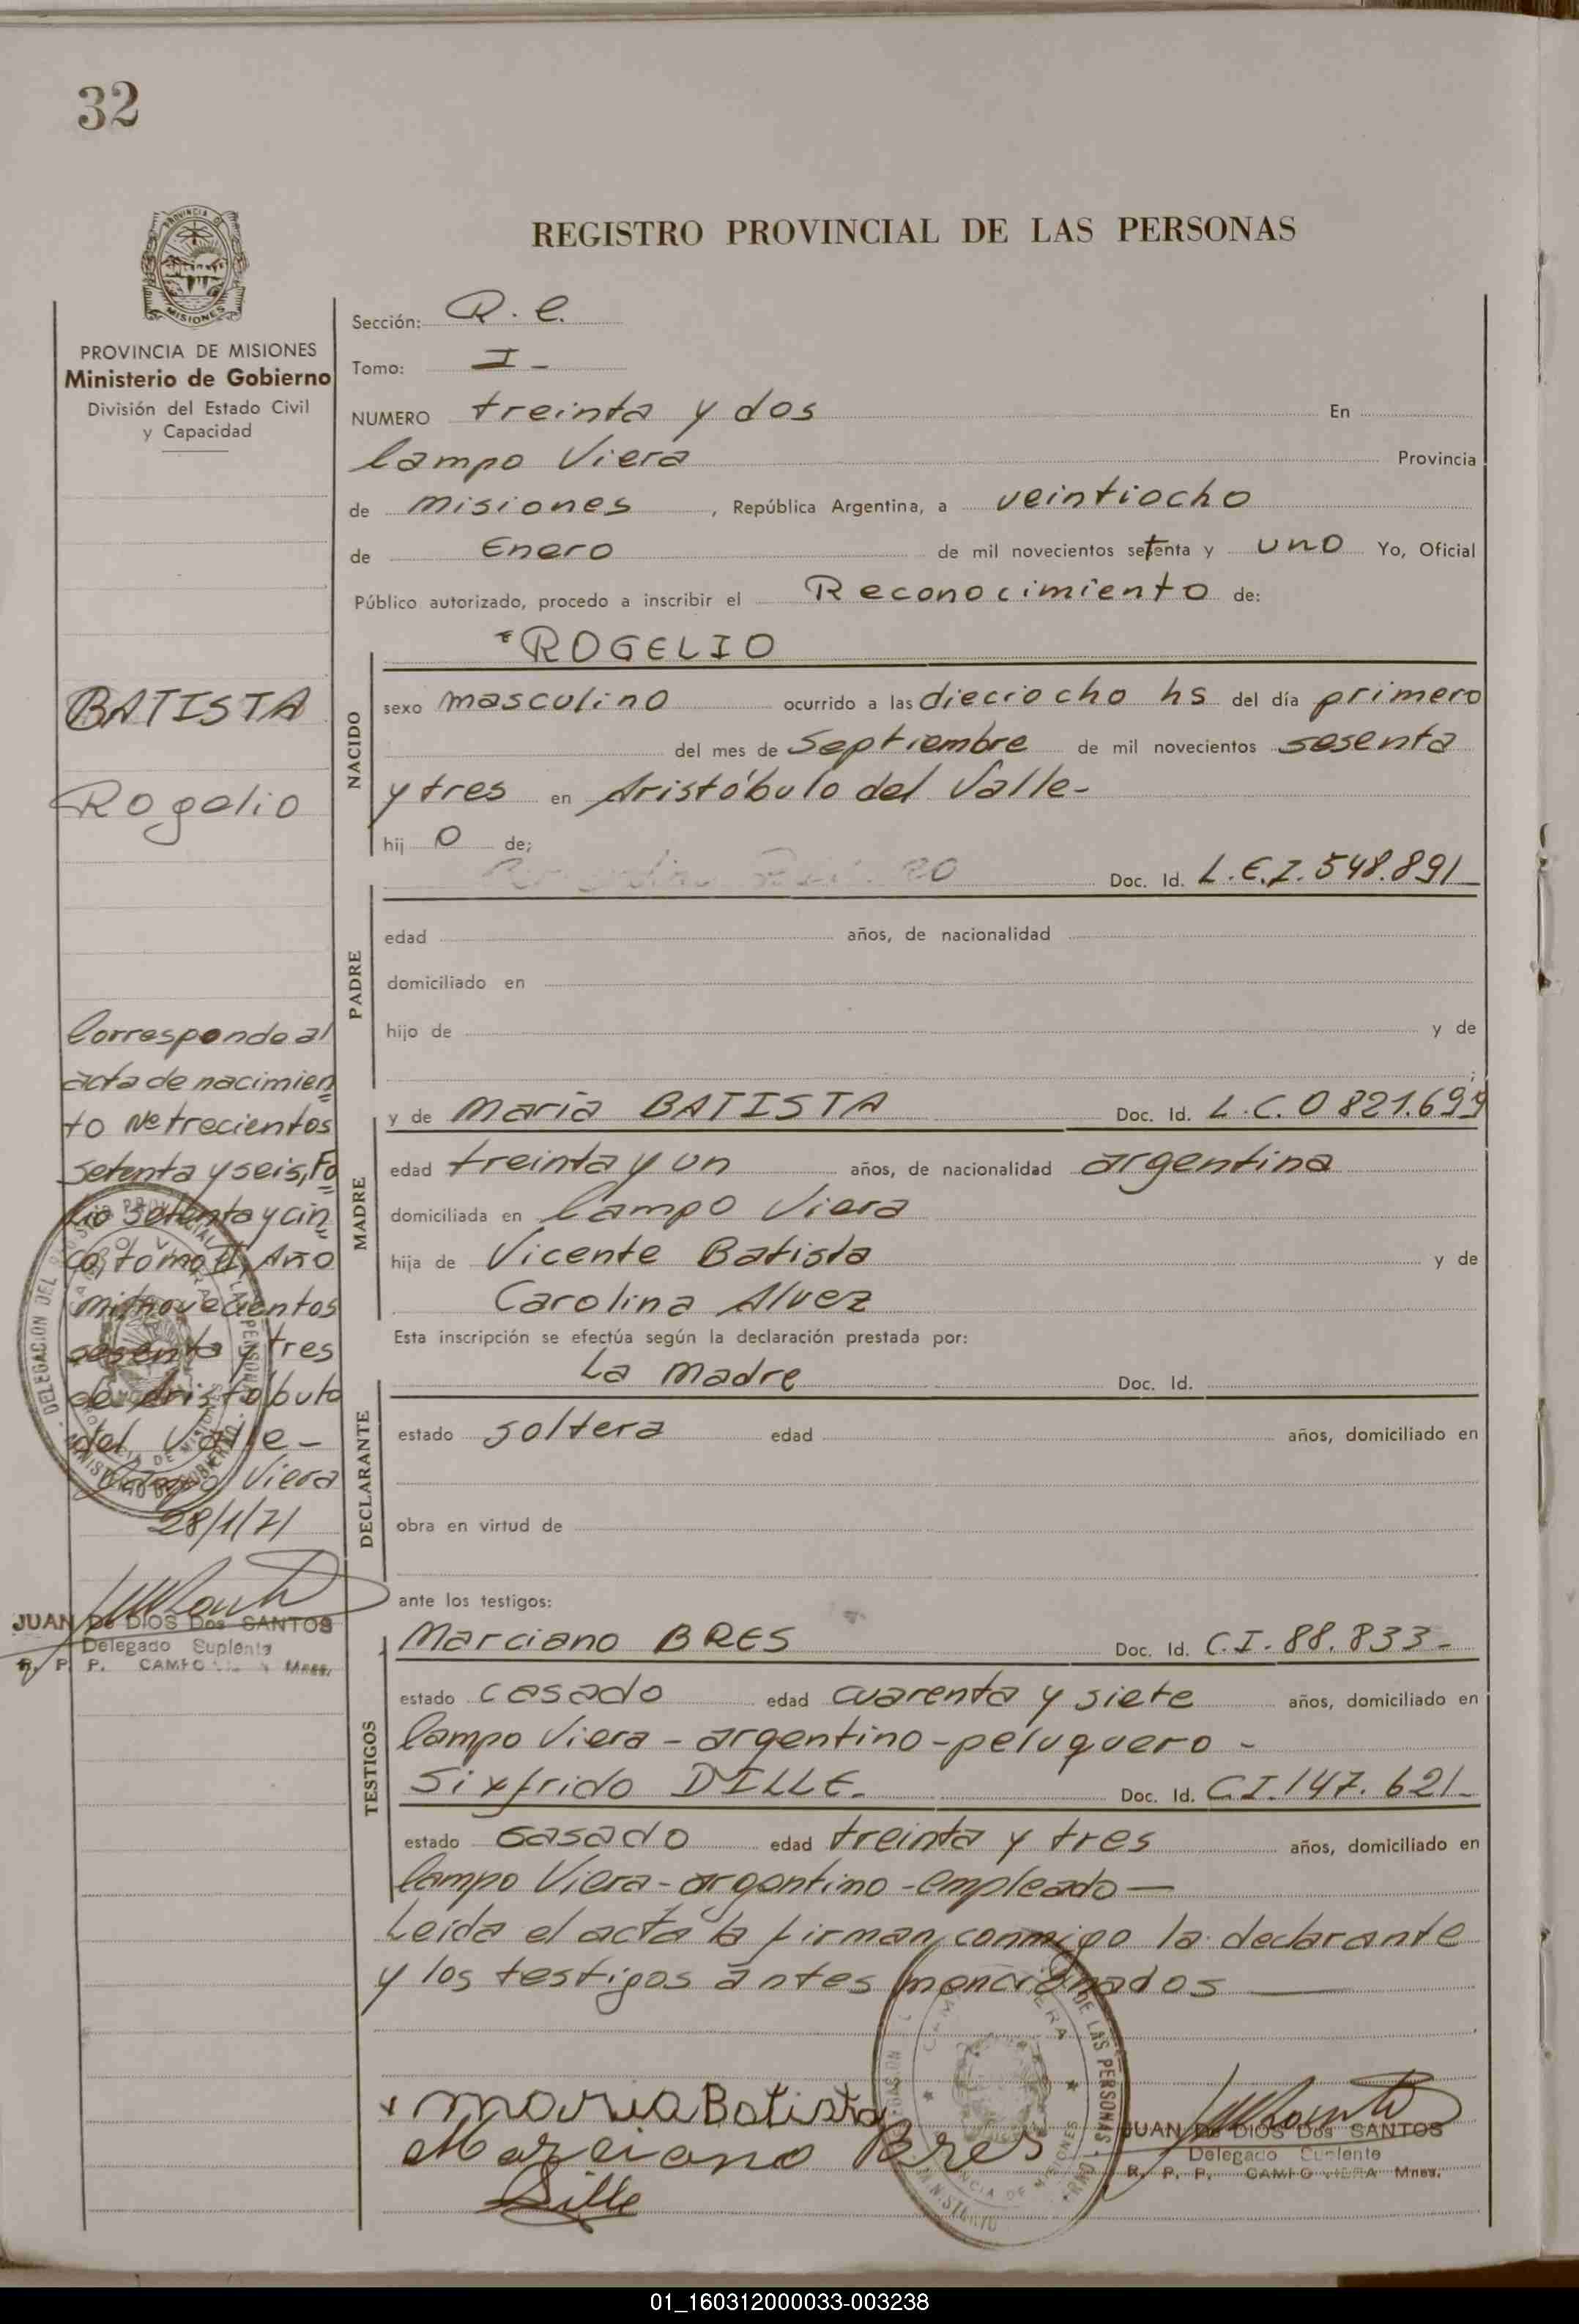 32
REGISTRO PROVINCIAL DE LAS PERSONAS
PROVINCIA DE
MISIONES
PROVINCIA DE MISIONES
Ministerio de Gobierno
División del Estado Civil
y Capacidad
Sección: R. e.
Tomo: I -
NUMERO treinta y dos En
Campo Viera Provincia
de Misiones , República Argentina, a veintiocho
de Enero de mil novecientos setenta y uno Yo, Oficial
Público autorizado, procedo a inscribir el Reconocimiento de:
ROGELIO
BATISTA
Rogelio
NACIDO
sexo masculino ocurrido a las dieciocho hs del día primero
del mes de Septiembre de mil novecientos sesenta
y tres en Aristóbulo del Valle-
hij o de;
Doc. Id. L.E.7.548.891
PADRE
edad años, de nacionalidad
domiciliado en
hijo de y de
;
MADRE
y de María BATISTA Doc. Id. L.C.0821.699
edad treinta y un años, de nacionalidad argentina
domiciliada en Campo Viera
hija de Vicente Batista y de
Carolina Alvez
Esta inscripción se efectúa según la declaración prestada por:
La Madre Doc. Id.
DECLARANTE
estado soltera edad años, domiciliado en
obra en virtud de
ante los testigos:
TESTIGOS
Marciano BRES Doc. Id. C.I. 88.833-
estado casado edad cuarenta y siete años, domiciliado en
Campo Viera - argentino - peluquero -
Sixfrido DILLE. Doc. Id. C.I. 147. 621-
estado casado edad treinta y tres años, domiciliado en
Campo Viera - argentino - empleado —
Leida el acta la firman, conmigo la declarante
y los testigos antes mencionados —
Corresponde al
acta de nacimien
to Nº trecientos
setenta y seis, Fo
lio setenta y cin
co, tomo II, Año
mil novecientos
sesenta y tres
de Aristóbulo
del Valle -
Campo Viera
28/1/71
JUAN De DIOS Dos SANTOS
Delegado Suplente
R. P. P. CAMPO Mnes.
x maria Batista
Marciano Bres
Dille
DE LAS PERSONAS
JUAN De DIOS Dos SANTOS
Delegado Suplente
R. P. P. CAMPO VIERA Mnes.
01_160312000033-003238